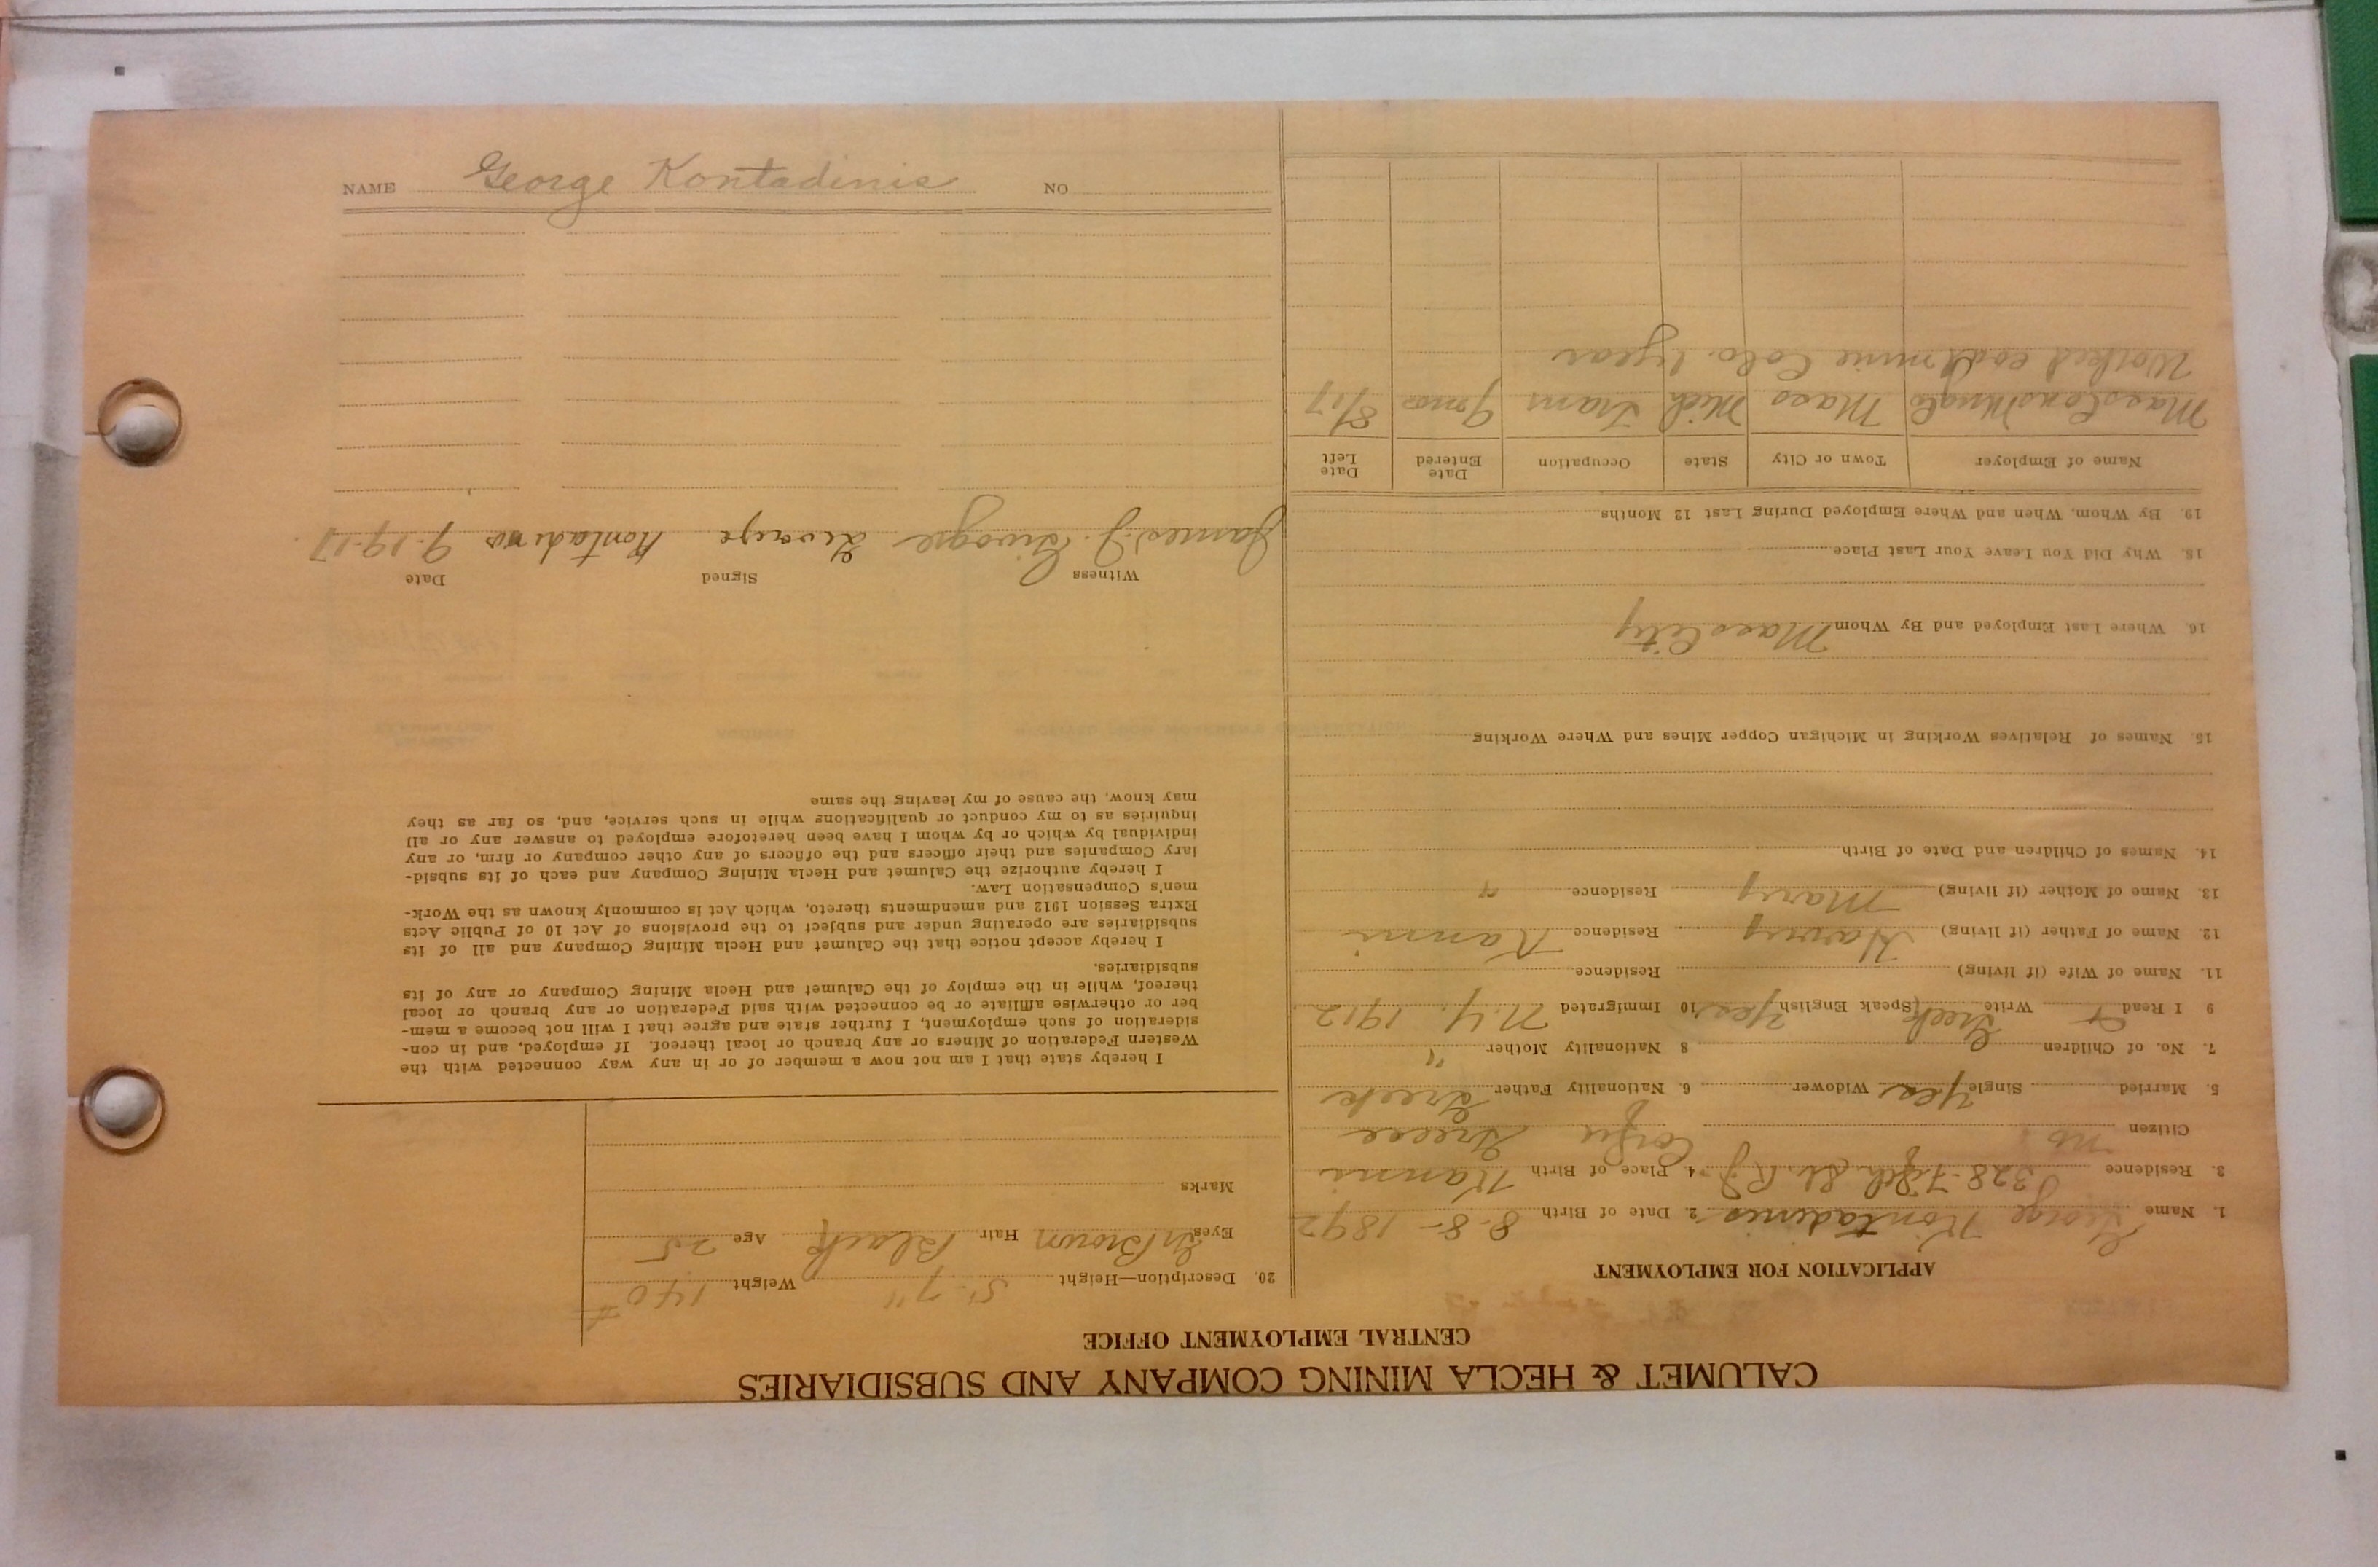 CALUMET & HECLA MINING COMPANY AND SUBSIDIARIES
CENTRAL EMPLOYMENT OFFICE
APPLICATION FOR EMPLOYMENT
1. Name George Kontadinis 2. Date of Birth 8-8-1892
3. Residence 328-7th St. R.J. 4. Place of Birth Kanni
Citizen no Corfu Greece
5. Married Single yes Widower 6. Nationality Father Greek
7. No. of Children 8 Nationality Mother "
9 I Read Write Greek Speak English yes 10 Immigrated N.Y. 1912
11. Name of Wife (if living) Residence
12. Name of Father (if living) Harry Residence Kanni
13. Name of Mother (if living) Mary Residence "
14. Names of Children and Date of Birth
15. Names of Relatives Working in Michigan Copper Mines and Where Working
16. Where Last Employed and By Whom Mass City
18. Why Did You Leave Your Last Place
19. By Whom, When and Where Employed During Last 12 Months
Name of Employer Town or City State Occupation Date Entered Date Left
Mass Cons Mng Co Mass Mich Tram 9 mos 8/17
Worked coal mine Colo. 1 year
20. Description—Height 5'-7" Weight 140#
Eyes Brown Hair Black Age 25
Marks
I hereby state that I am not now a member of or in any way connected with the
Western Federation of Miners or any branch or local thereof. If employed, and in con-
sideration of such employment, I further state and agree that I will not become a mem-
ber or otherwise affiliate or be connected with said Federation or any branch or local
thereof, while in the employ of the Calumet and Hecla Mining Company or any of its
subsidiaries.
I hereby accept notice that the Calumet and Hecla Mining Company and all of its
subsidiaries are operating under and subject to the provisions of Act 10 of Public Acts
Extra Session 1912 and amendments thereto, which Act is commonly known as the Work-
men's Compensation Law.
I hereby authorize the Calumet and Hecla Mining Company and each of its subsid-
iary Companies and their officers and the officers of any other company or firm, or any
individual by which or by whom I have been heretofore employed to answer any or all
inquiries as to my conduct or qualifications while in such service, and, so far as they
may know, the cause of my leaving the same
Witness Signed Date
James J. George Kontadinis 9-19-17
NAME George Kontadinis NO